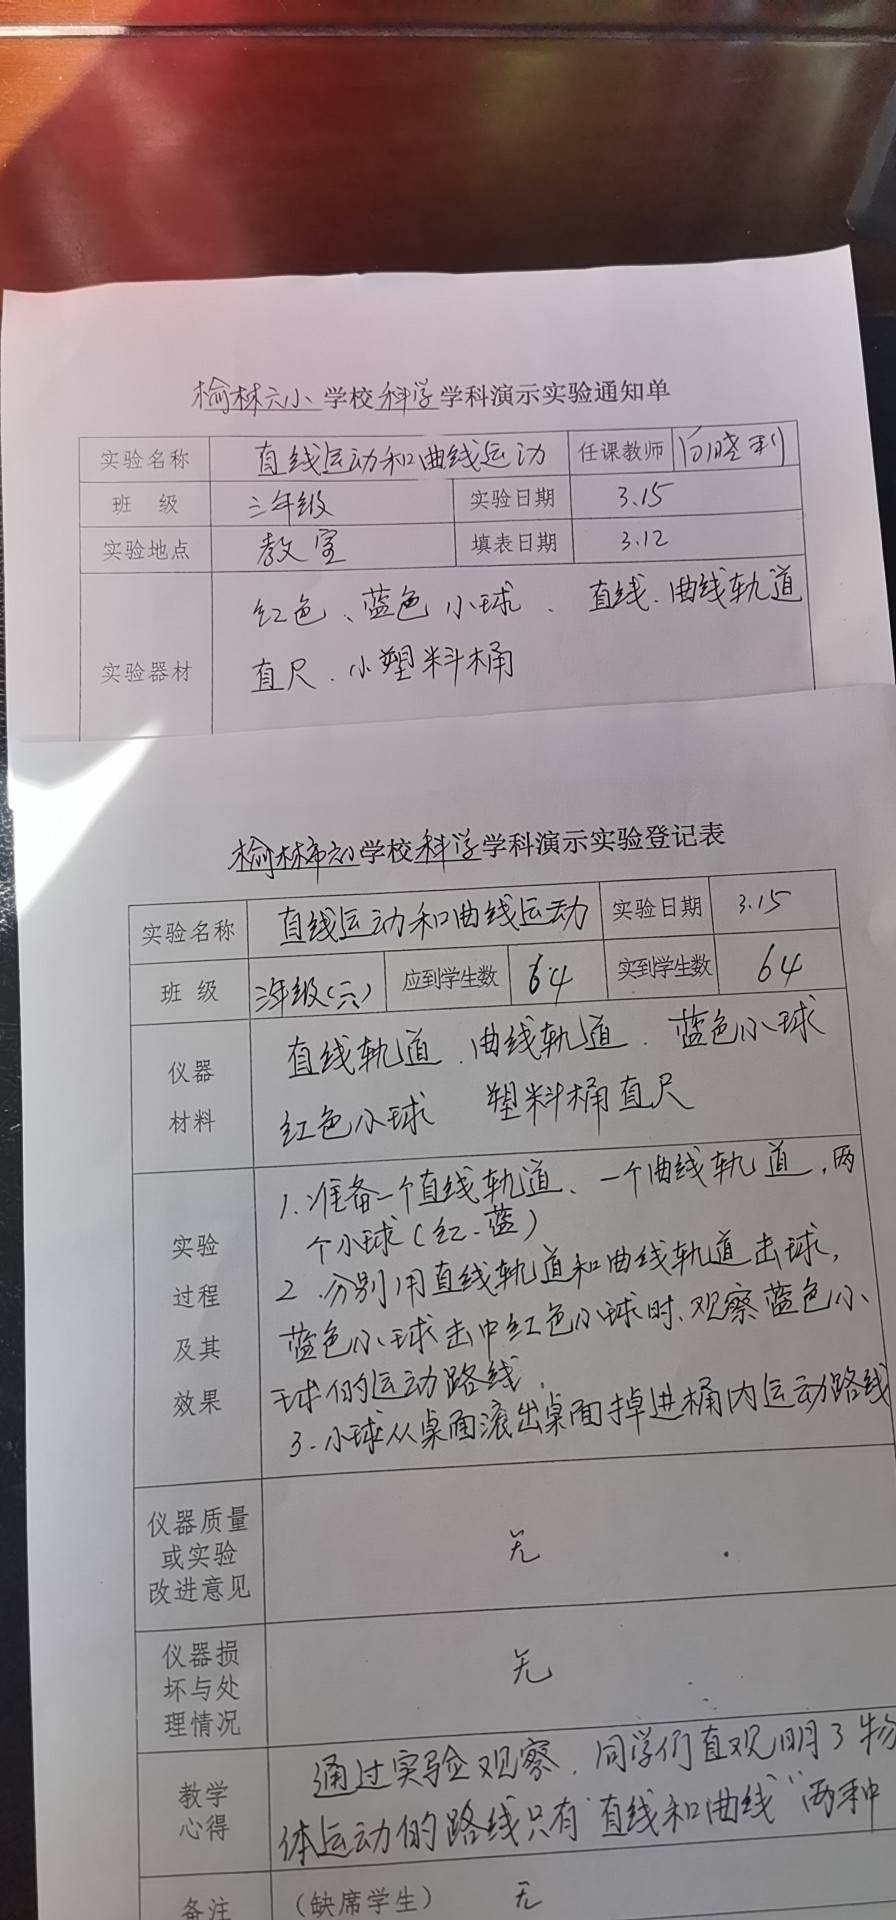 榆林六小学校科学学科演示实验通知单
实验名称 直线运动和曲线运动 任课教师 晓利
班 级 三年级 实验日期 3.15
实验地点 教室 填表日期 3.12
红色、蓝色小球、直线、曲线轨道
实验器材 直尺、小塑料桶
榆林市学校科学学科演示实验登记表
实验名称 直线运动和曲线运动 实验日期 3.15
班 级 三年级(六) 应到学生数 64 实到学生数 64
仪器 直线轨道、曲线轨道、蓝色小球
材料 红色小球 塑料桶直尺
1.准备一个直线轨道、一个曲线轨道,两
实验 个小球(红、蓝)
过程 2.分别用直线轨道和曲线轨道击球,
及其 蓝色小球击中红色小球时、观察蓝色小
效果 球的运动路线.
3.小球从桌面滚出桌面掉进桶内运动路线
仪器质量
或实验 无
改进意见
仪器损
坏与处 无
理情况
教学 通过实验观察,同学们直观明了物
心得 体运动的路线只有“直线和曲线”两种
备注 (缺席学生) 无